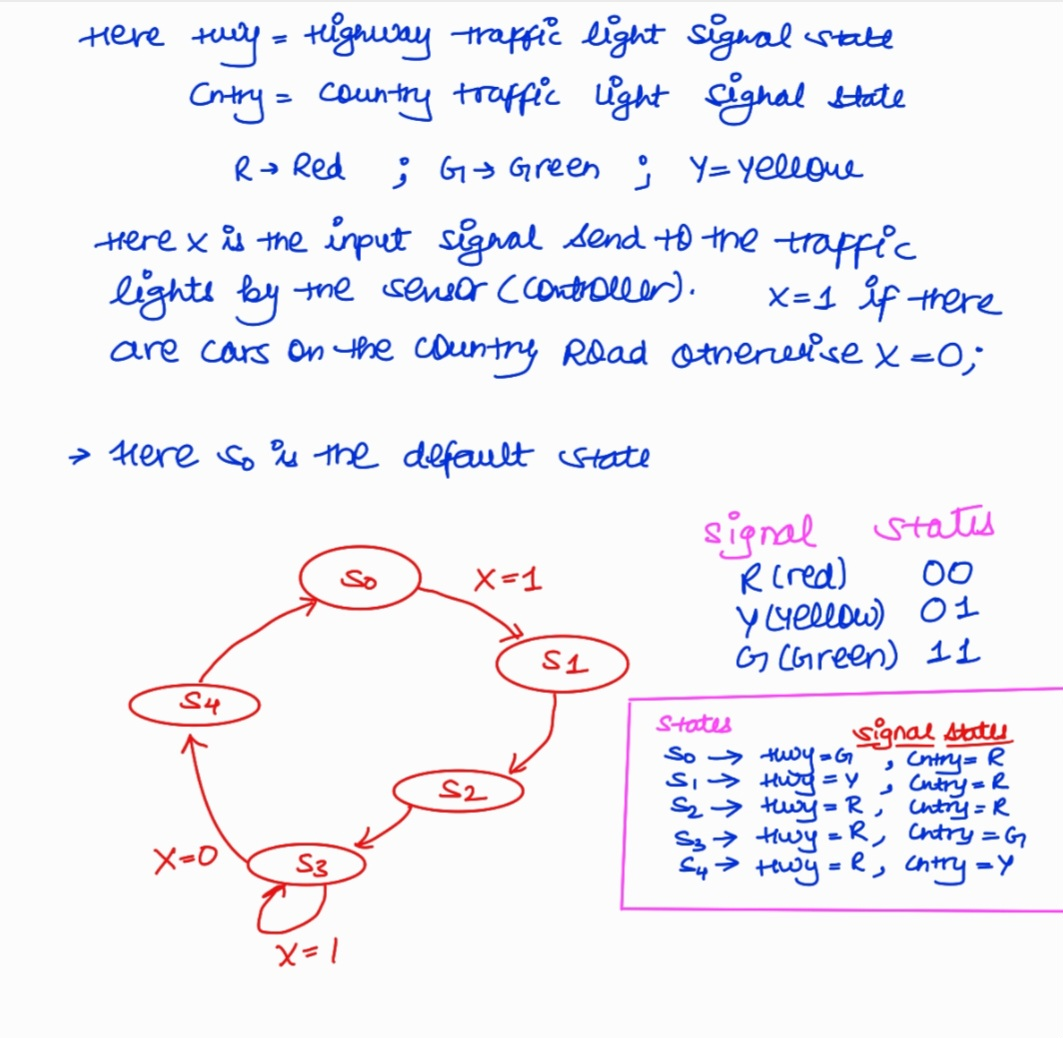 Here Hwy = Highway traffic light signal state
Cntry = Country traffic light signal state
R → Red ; G → Green ; Y = Yellow
Here X is the input signal send to the traffic
lights by the sensor (controller). X=1 if there
are cars on the country Road otherwise X=0;
→ Here S0 is the default state
signal status
R (red) 00
Y (yellow) 01
G (Green) 11
S0
X=1
S1
S4
S2
X=0
S3
X=1
States signal states
S0 → Hwy = G , Cntry = R
S1 → Hwy = Y , Cntry = R
S2 → Hwy = R , Cntry = R
S3 → Hwy = R , Cntry = G
S4 → Hwy = R , Cntry = Y